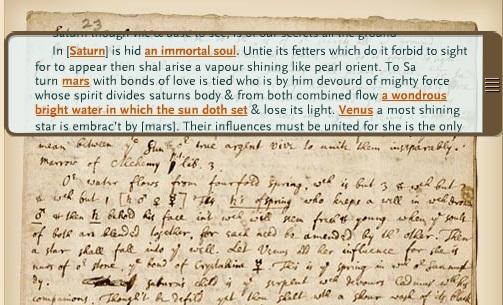 23
Saturn though vile & base to see, is of our secrets all the ground
In [Saturn] is hid an immortal soul. Untie its fetters which do it forbid to sight
for to appear then shal arise a vapour shining like pearl orient. To Sa
turn mars with bonds of love is tied who is by him devourd of mighty force
whose spirit divides saturns body & from both combined flow a wondrous
bright water in which the sun doth set & lose its light. Venus a most shining
star is embrac't by [mars]. Their influences must be united for she is the only
mean between ye Sun & our true argent vive to unite them inseparably.
Marrow of Alchemy lib. 3
Or water flows from fourfold spring. wch is but 3 & wch but 2
& wch but 1
& then behold his face in't wch will seem fresh & young when ye souls
of both are blended together, for each need be amended by th' other. Then
a star shall fall into ye well. Let Venus add her influence for she is
nurs of or stone, ye bond of Crystalline ☿. This is ye spring in wch or Sun must
dy. Saturn's child is ye serpent wch devours Cadmus with his
companions.